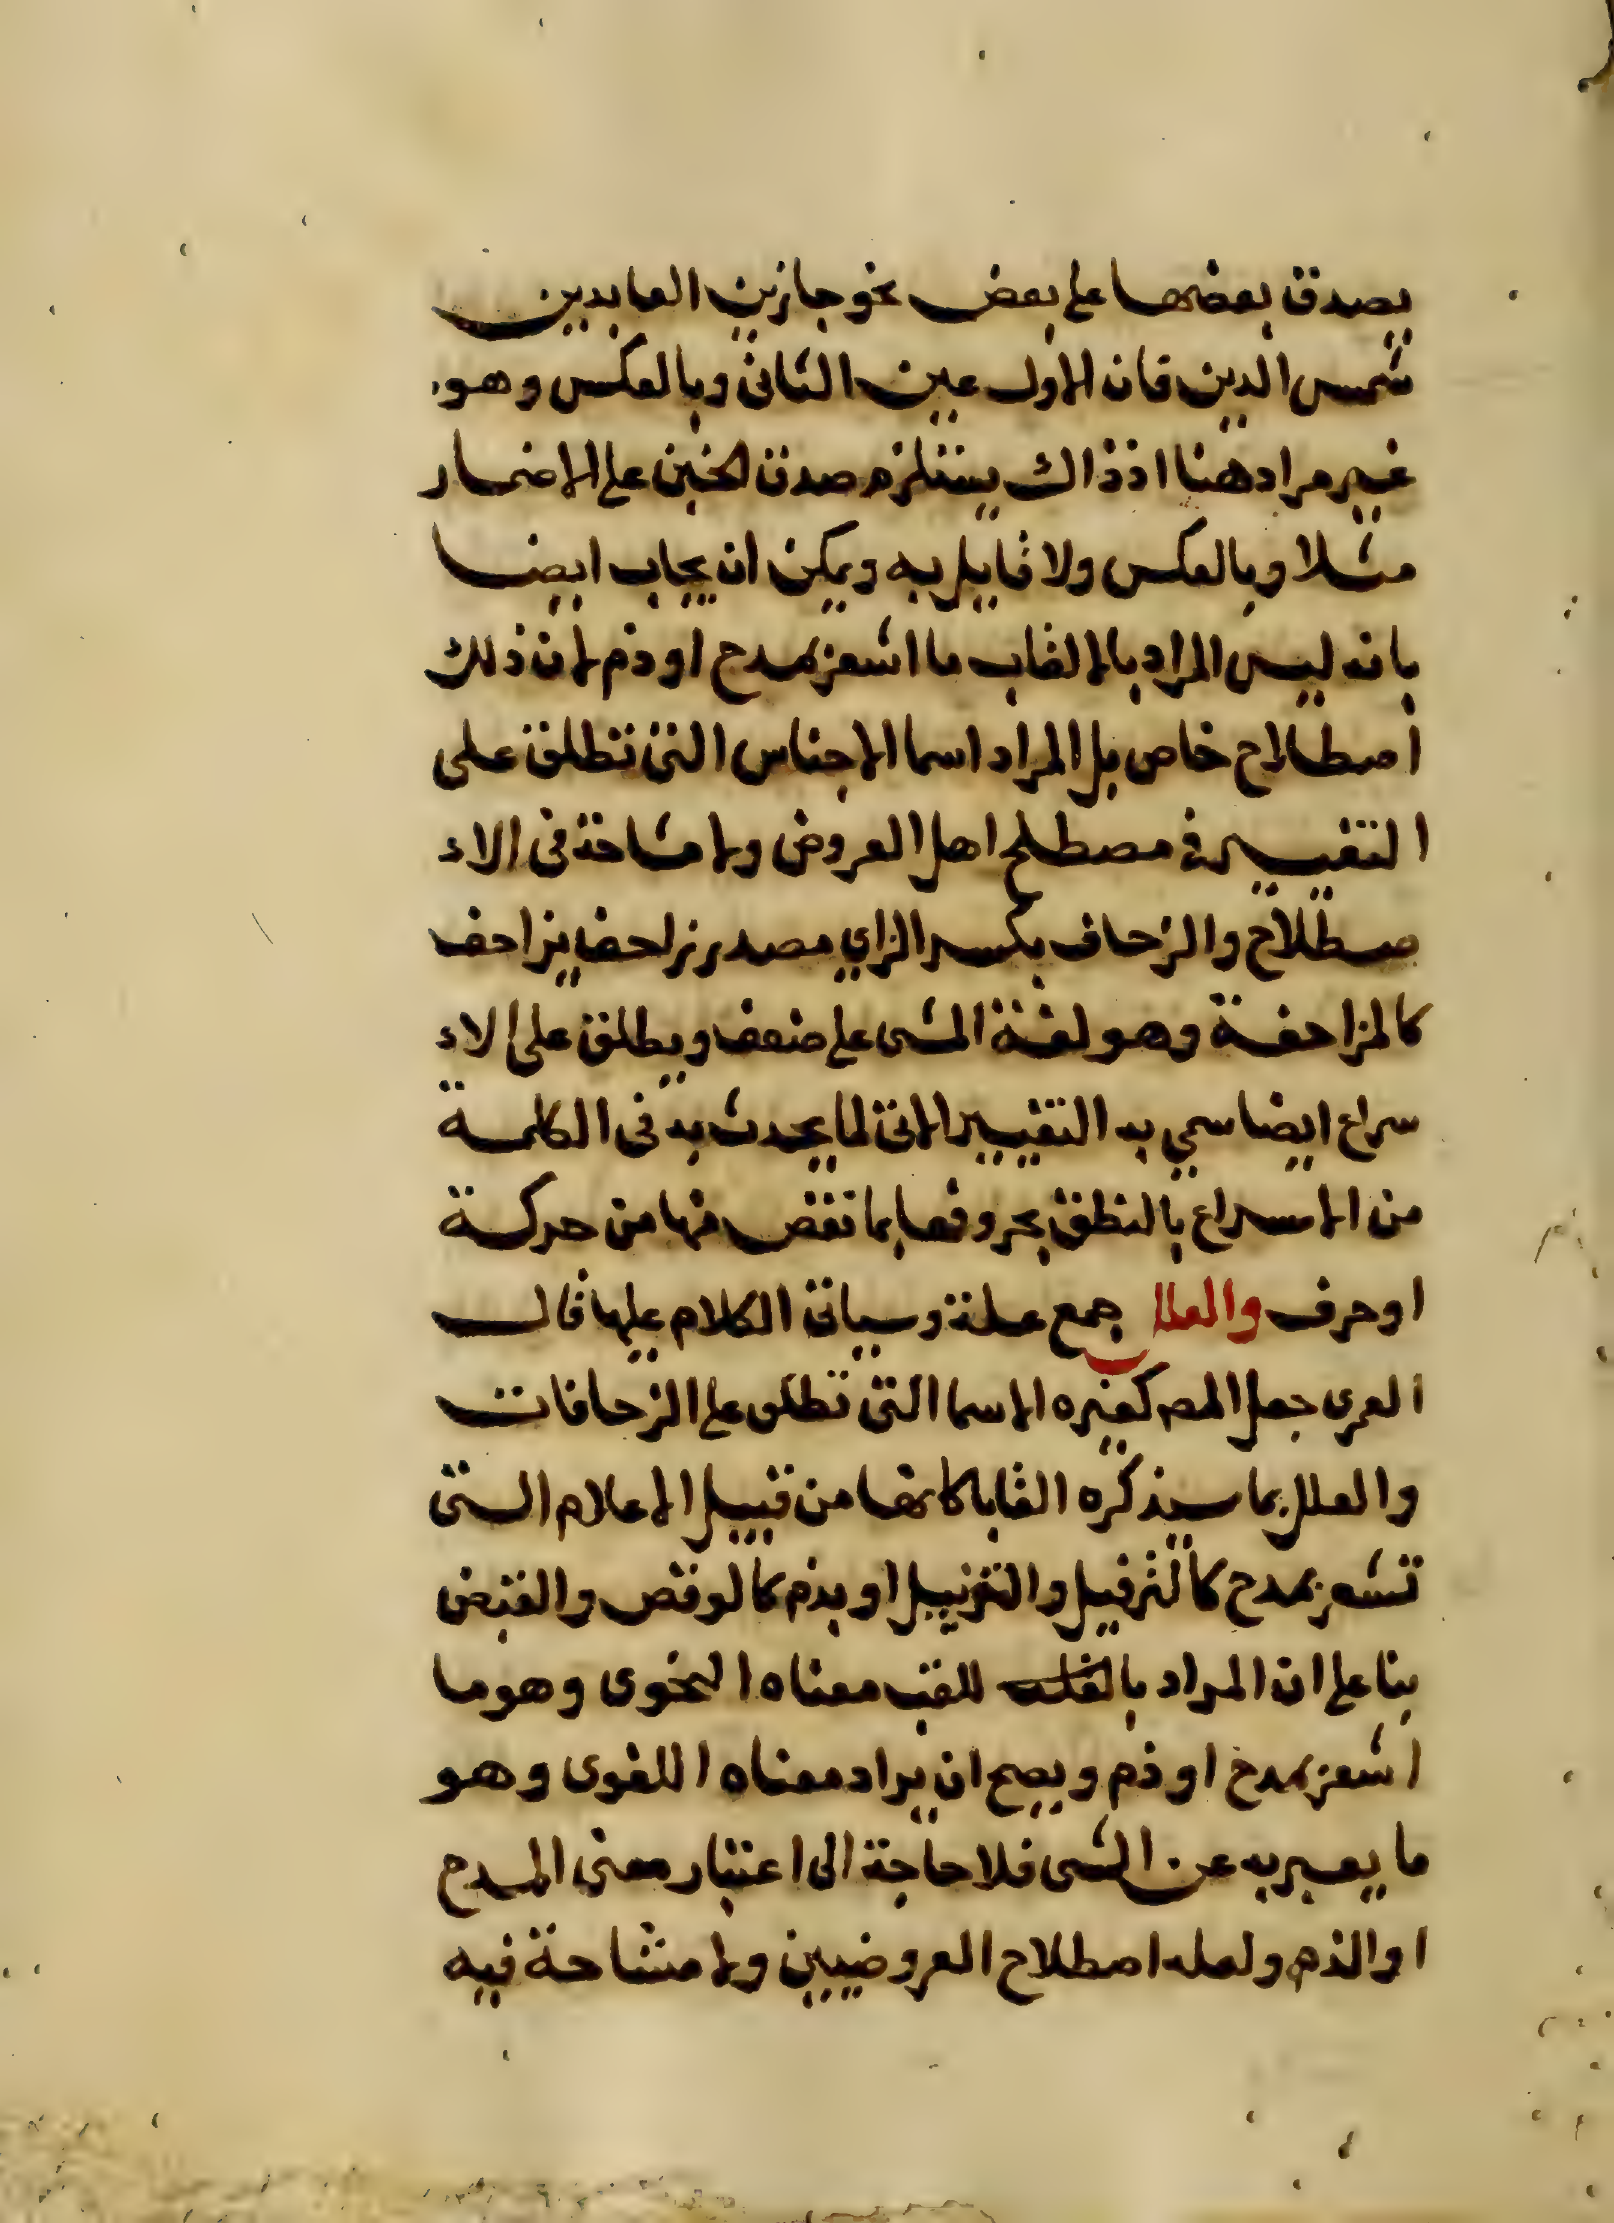 يصدق بعضها على بعض نحو جا زين العابدين
شمس الدين فان الاول عين الثانى وبالعكس وهو
غير مراد هنا اذ ذاك يستلزم صدق الخبن على الاضمار
مثلا وبالعكس ولا قايل به ويمكن ان يجاب ايضا
بانه ليس المراد بالالقاب ما اشعر بمدح او ذم لان ذلك
اصطلاح خاص بل المراد اسما الاجناس التى تطلق على
التغيير فى مصطلح اهل العروض ولا مشاحة فى الاد
صطلاح والزحاف بكسر الزاي مصدر زاحف يزاحف
كالمزاحفة وهو لغة المشى على ضعف ويطلق على الاد
سراع ايضا سمي به التغيير الاتى لما يحدث به فى الكلمة
من الاسراع بالنطق بحروفها بما نقص منها من حركة
او حرف والعلل جمع علة وسياتى الكلام عليها قال
العمرى جعل المص كغيره الاسما التى تطلق على الزحافات
والعلل بما سيذكره القابا كانها من قبيل الاعلام التى
تشعر بمدح كالترفيل والتذييل او بذم كالوقص والقبض
بنا على ان المراد باللقب معناه النحوى وهو ما
اشعر بمدح او ذم ويصح ان يراد معناه اللغوى وهو
ما يعبر به عن الشى فلا حاجة الى اعتبار معنى المدح
او الذم ولعله اصطلاح العروضيين ولا مشاحة فيه